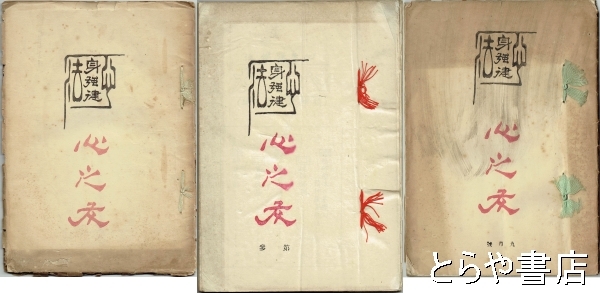 心身強健法
心之友
心身強健法
心之友
第参
心身強健法
心之友
九月號
とらや書店